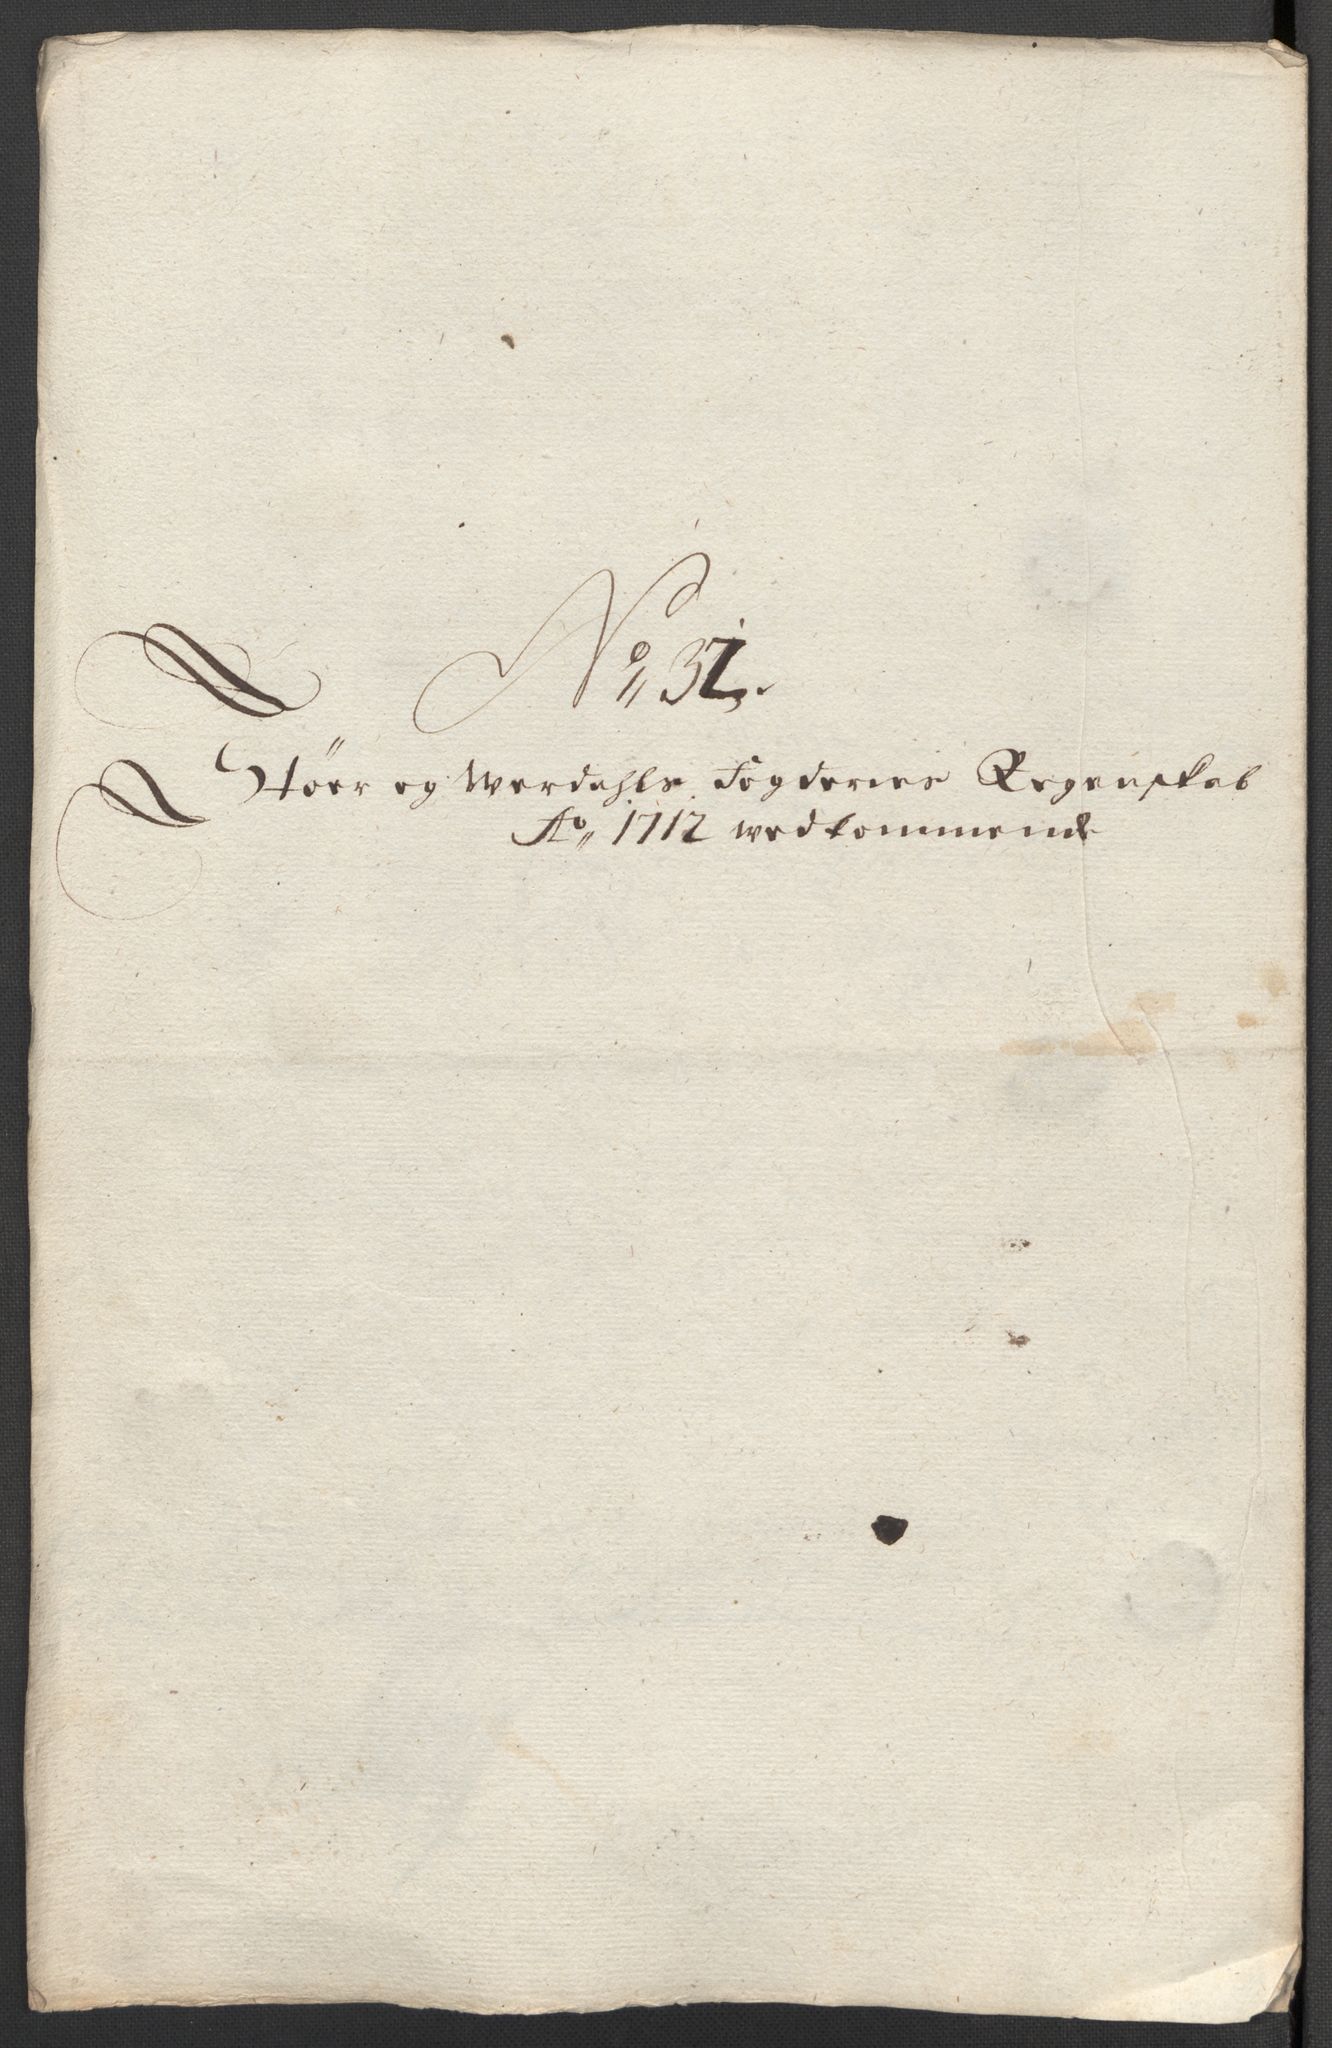 No 32.
Støer og Werdahls Fogderies Regenskab
Ao 1712 wedkommende